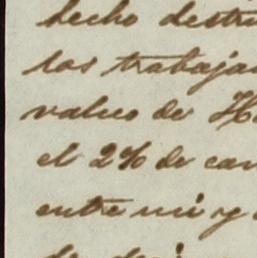 hecho destr
los trabaja
value de H
el 2% de can
entre mi y